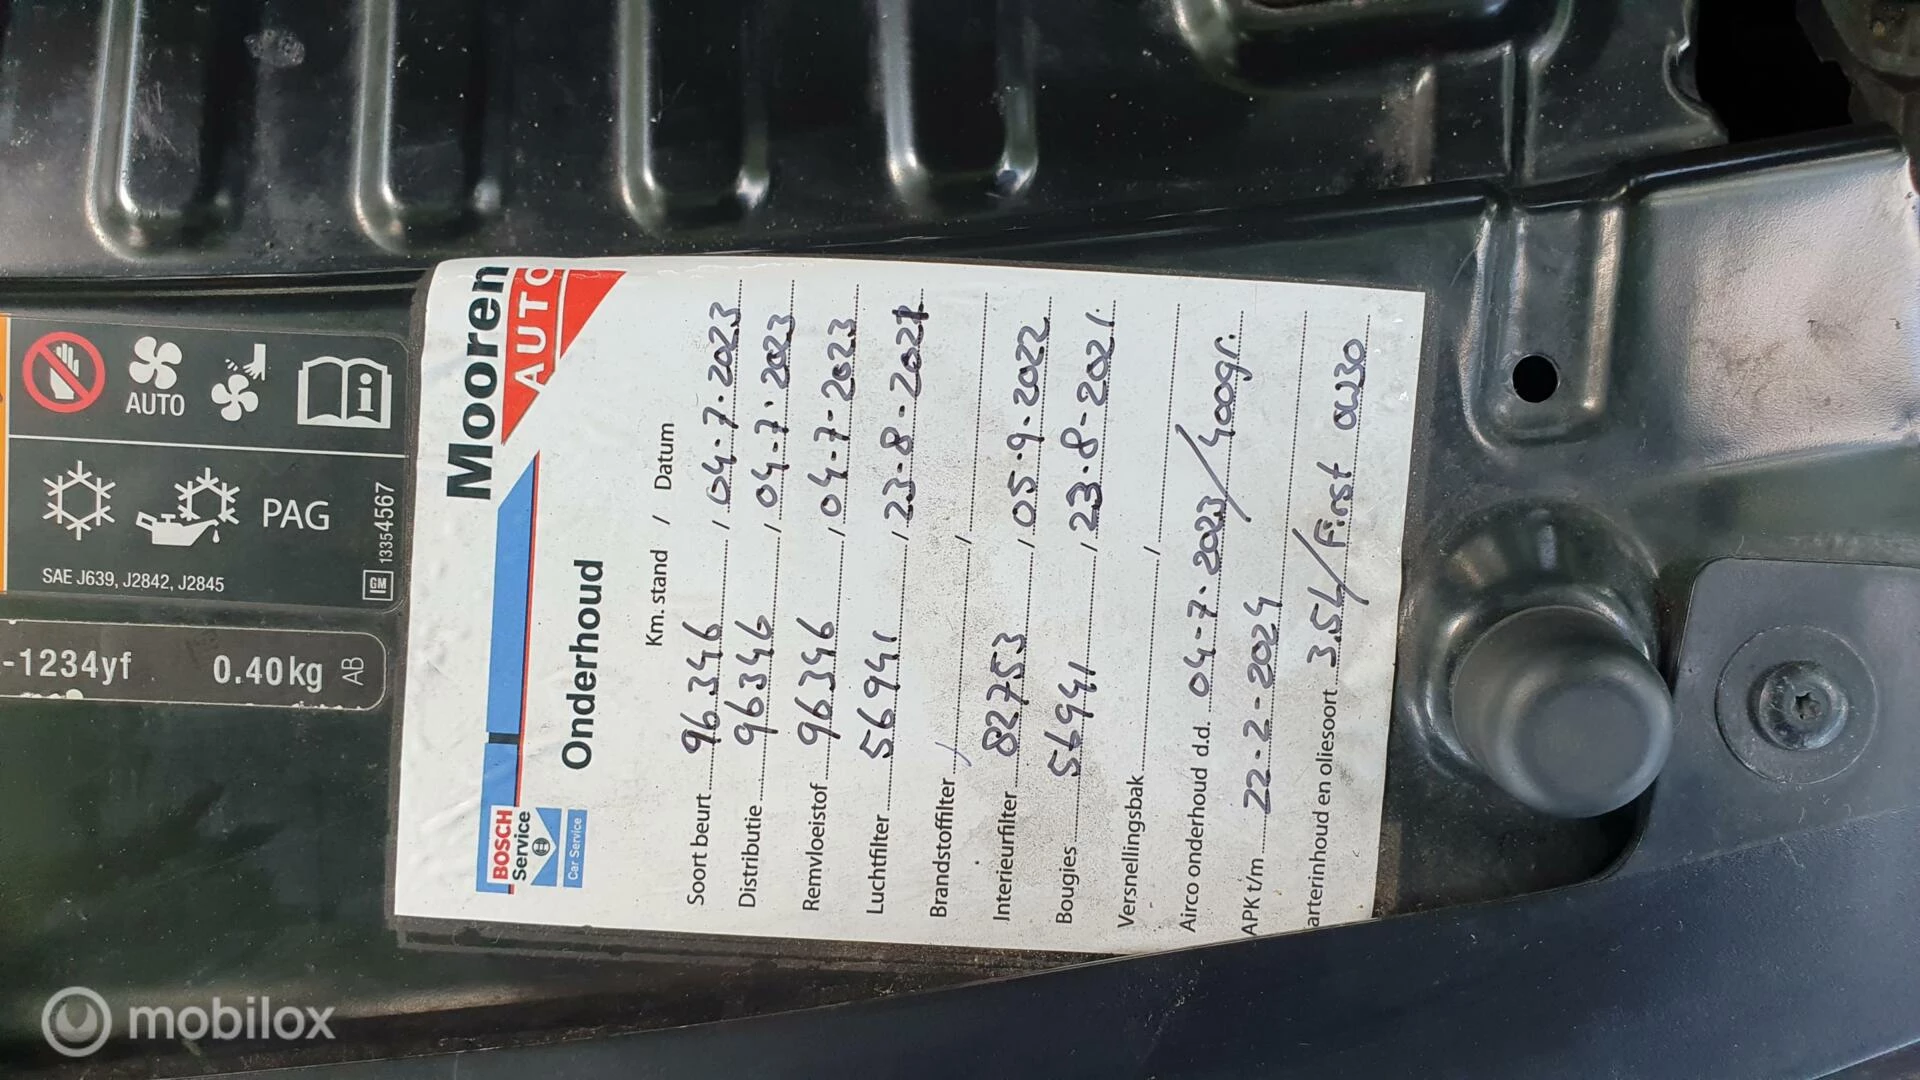 AUTO
PAG
SAE J639, J2842, J2845
GM
13354567
-1234yf 0.40kg AB
Mooren
AUTO
BOSCH
Service
Car Service
Onderhoud
Km. stand / Datum
Soort beurt 96346 / 04-7-2023
Distributie 96346 / 04-7-2023
Remvloeistof 96346 / 04-7-2023
Luchtfilter 56941 / 23-8-2021
Brandstoffilter /
Interieurfilter 82753 / 05-9-2022
Bougies 56941 / 23-8-2021.
Versnellingsbak /
Airco onderhoud d.d. 04-7-2023/400gr.
APK t/m 22-2-2024
arterinhoud en oliesoort 3.5L/First 0W30
mobilox